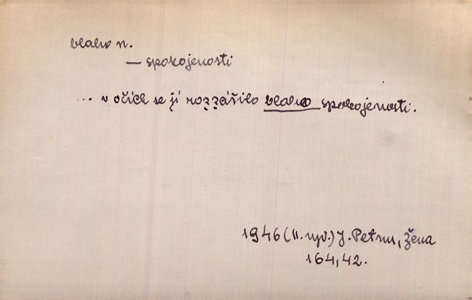 blaho n.
— spokojenosti
... v očích se jí rozzářilo blaho spokojenosti.
1946 (II. vyd.) J. Petrus, Žena
164, 42.